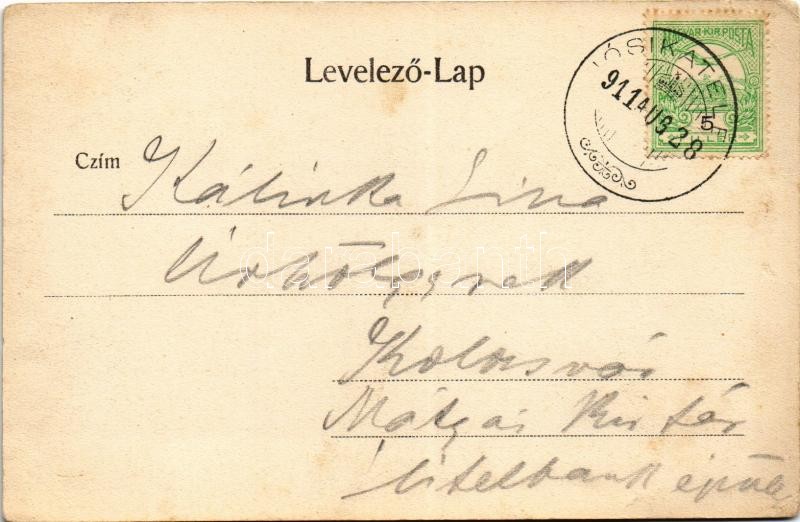 Levelező-Lap
MAGYAR·KIR·POSTA
JÓSIKATELEP
911 AUG 28
5
Czím
Kálinka Lina
Úrhölgynek
Kolozsvár
Mátyás Kir tér
hitelbank épület
darabanth